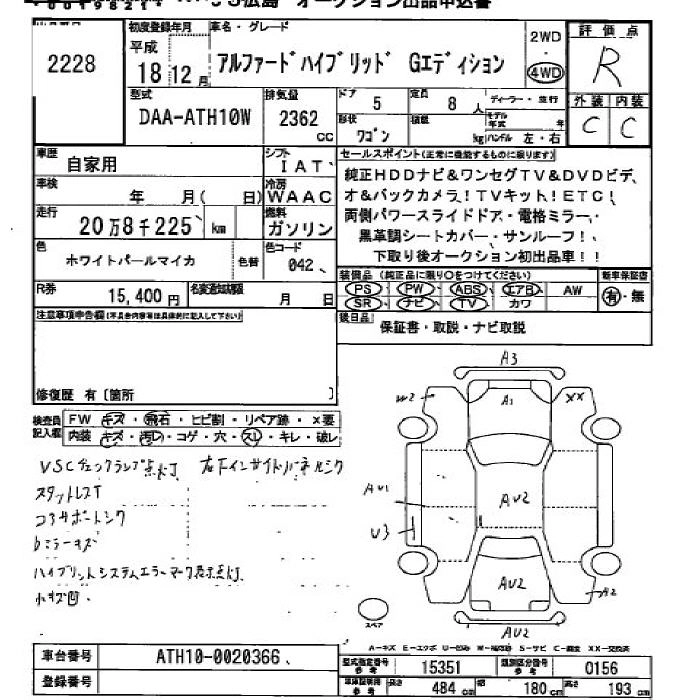 広島 オークション出品申込書
2228
初度登録年月
平成
18 12 月
車名・グレード
アルファードハイブリッド Gエディション
2WD
4WD
評価点
R
外装 内装
C C
型式
DAA-ATH10W
排気量
2362
CC
ドア
5
定員
8 人
形状
ワゴン
積載
kg
ディーラー・並行
モデル年式 年
ハンドル 左・右
車歴
自家用
シフト
IAT
車検
年 月( 日)
冷房
WAAC
走行
20万8千225 km
燃料
ガソリン
色
ホワイトパールマイカ
色替
色コード
042
R券
15,400 円
名変通知期限
月 日
セールスポイント(正常に機能するものに限ります)
純正HDDナビ&ワンセグTV&DVDビデ
オ&バックカメラ!TVキット!ETC!
両側パワースライドドア・電格ミラー・
黒革調シートカバー・サンルーフ!
下取り後オークション初出品車!!
装備品 (純正品に限り○をつけてください)
新車保証書
PS PW ABS エアB AW
SR ナビ TV カワ
有・無
後日品
保証書・取説・ナビ取説
注意事項申告欄(不具合内容等は具体的に記入して下さい)
修復歴 有〔箇所 〕
検査員記入欄
FW キズ・飛石・ヒビ割・リペア跡・×要
内装 キズ・汚レ・コゲ・穴・スレ・キレ・破レ
VSCチェックランプ点灯
スタットレスT
コアサポートシク
bミラーキズ
ハイブリットシステムエラーマーク表示点灯
小キズ凹
A3
W2
A1
XX
AU1
AU2
U3
AU2
A2
AU2
スペア
A-キズ E-エクボ U-凹み W-補修跡 S-サビ C-腐食 XX-交換済
車台番号
ATH10-0020366
登録番号
型式指定番号
参考
15351
類別区分番号
参考
0156
車体証明欄
参考
長さ
484 cm
幅
180 cm
高さ
193 cm